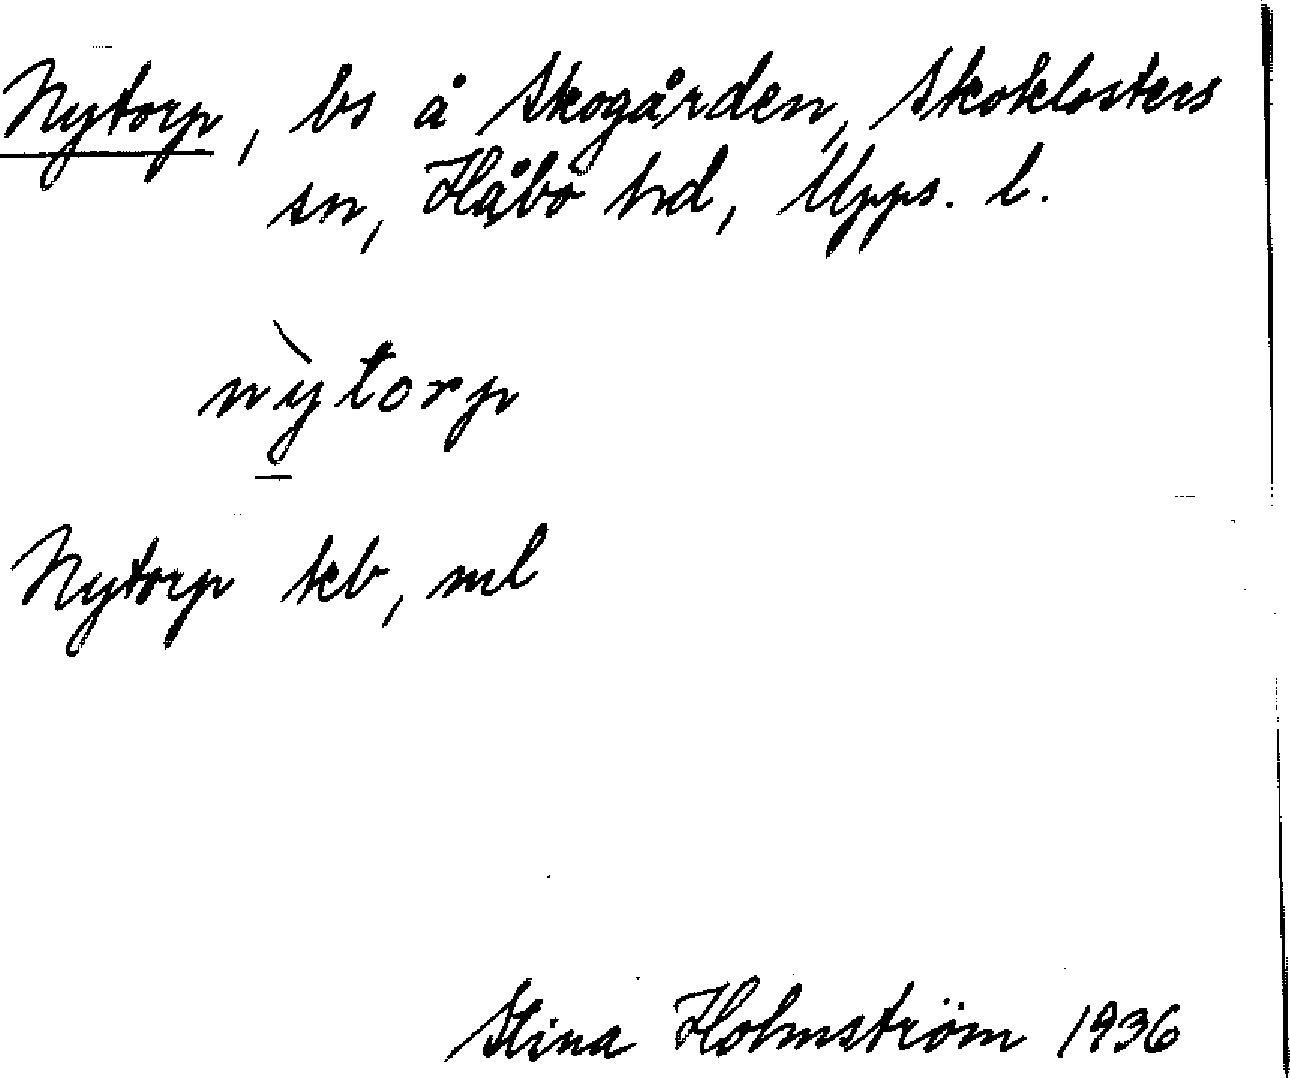 Nytorp, bs å Skogården, Skoklosters
sn, Håbo hd, Upps. l.
nỳtorp
Nytorp kb, ml
Stina Holmström 1936